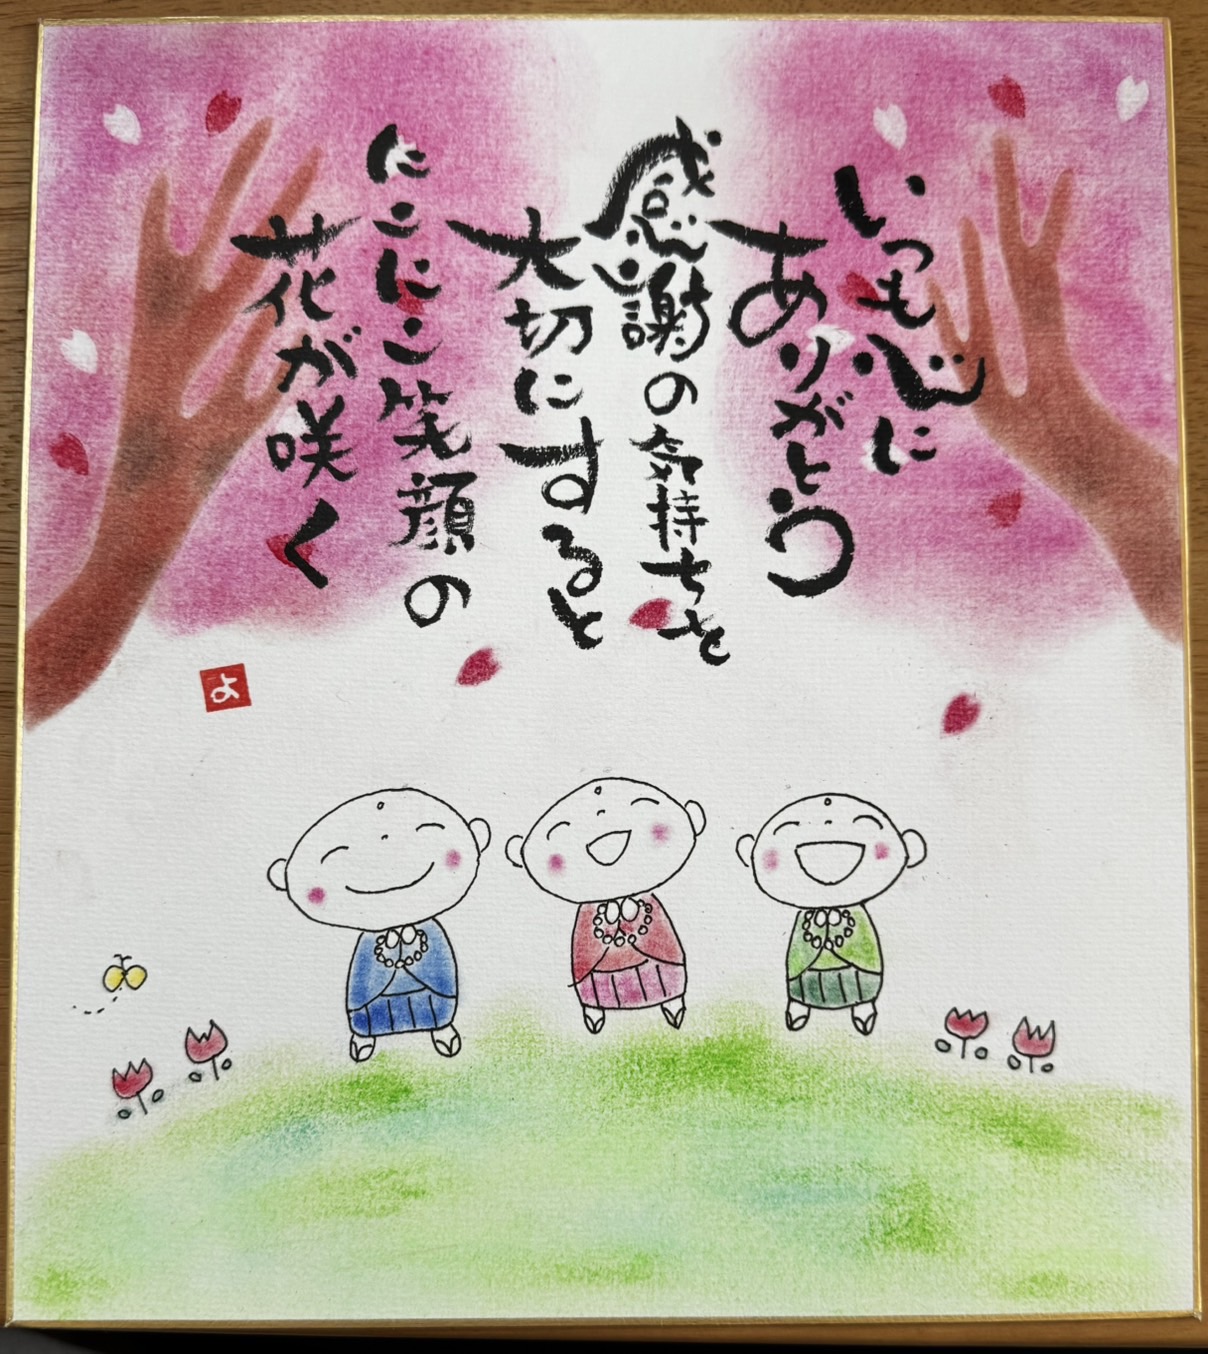 いつも心に
ありがとう
感謝の気持ちを
大切にすると
にこにこ笑顔の
花が咲く
よ